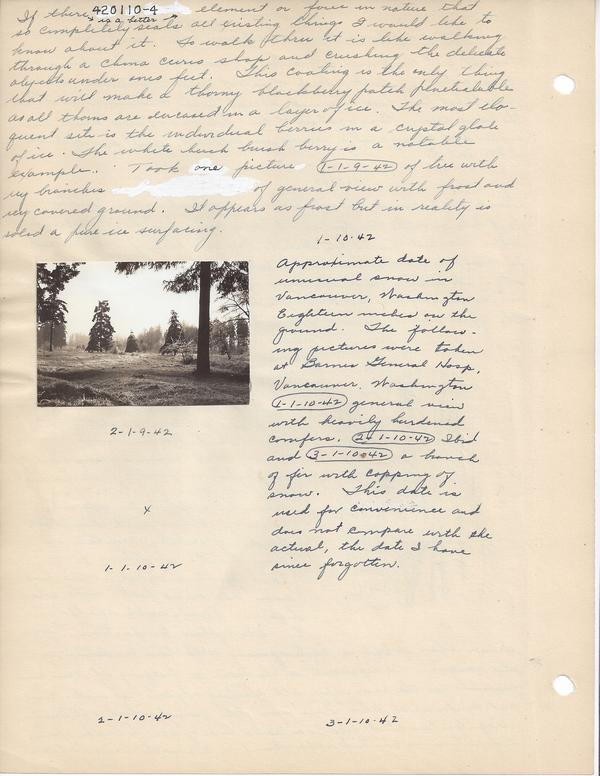 420110-4
If there is a better element or force in nature that
so completely seals all existing things I would like to
know about it. To walk thru it is like walking
through a china curio shop and crushing the delicate
objects under ones feet. This coating is the only thing
that will make a thorny blackberry patch penetrable
as all thorns are encased in a layer of ice. The most elo-
quent site is the individual berries in a crystal globe
of ice. The white bush berry is a notable
example. Took one picture 1-1-9-42 of tree with
icy branches of general view with frost and
icy covered ground. It appears as frost but in reality is
solid a pure ice surfacing.
1-10-42
Approximate date of
unusual snow in
Vancouver, Washington
Eighteen inches on the
ground. The follow-
ing pictures were taken
at Barnes General Hosp,
Vancouver, Washington
1-1-10-42 general view
with heavily burdened
conifers. 2-1-10-42 Ibid
and 3-1-10-42 a branch
of fir with capping of
snow. This date is
used for convenience and
does not compare with the
actual, the date I have
since forgotten.
2-1-9-42
x
1-1-10-42
2-1-10-42
3-1-10-42